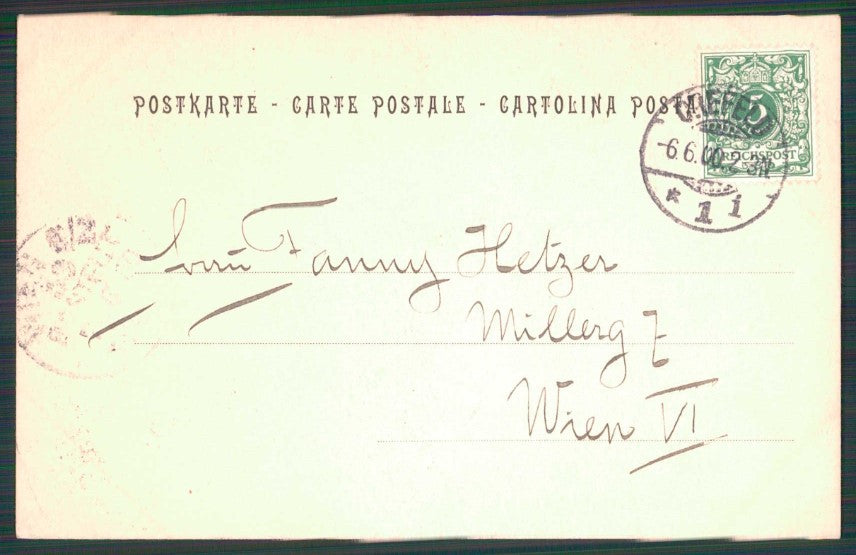 POSTKARTE - CARTE POSTALE - CARTOLINA POSTA
CREFELD
5
REICHSPOST
-6.6.00.2-3N
* 1 i
Frau Fanny Hetzer
Millerg 7
Wien VI